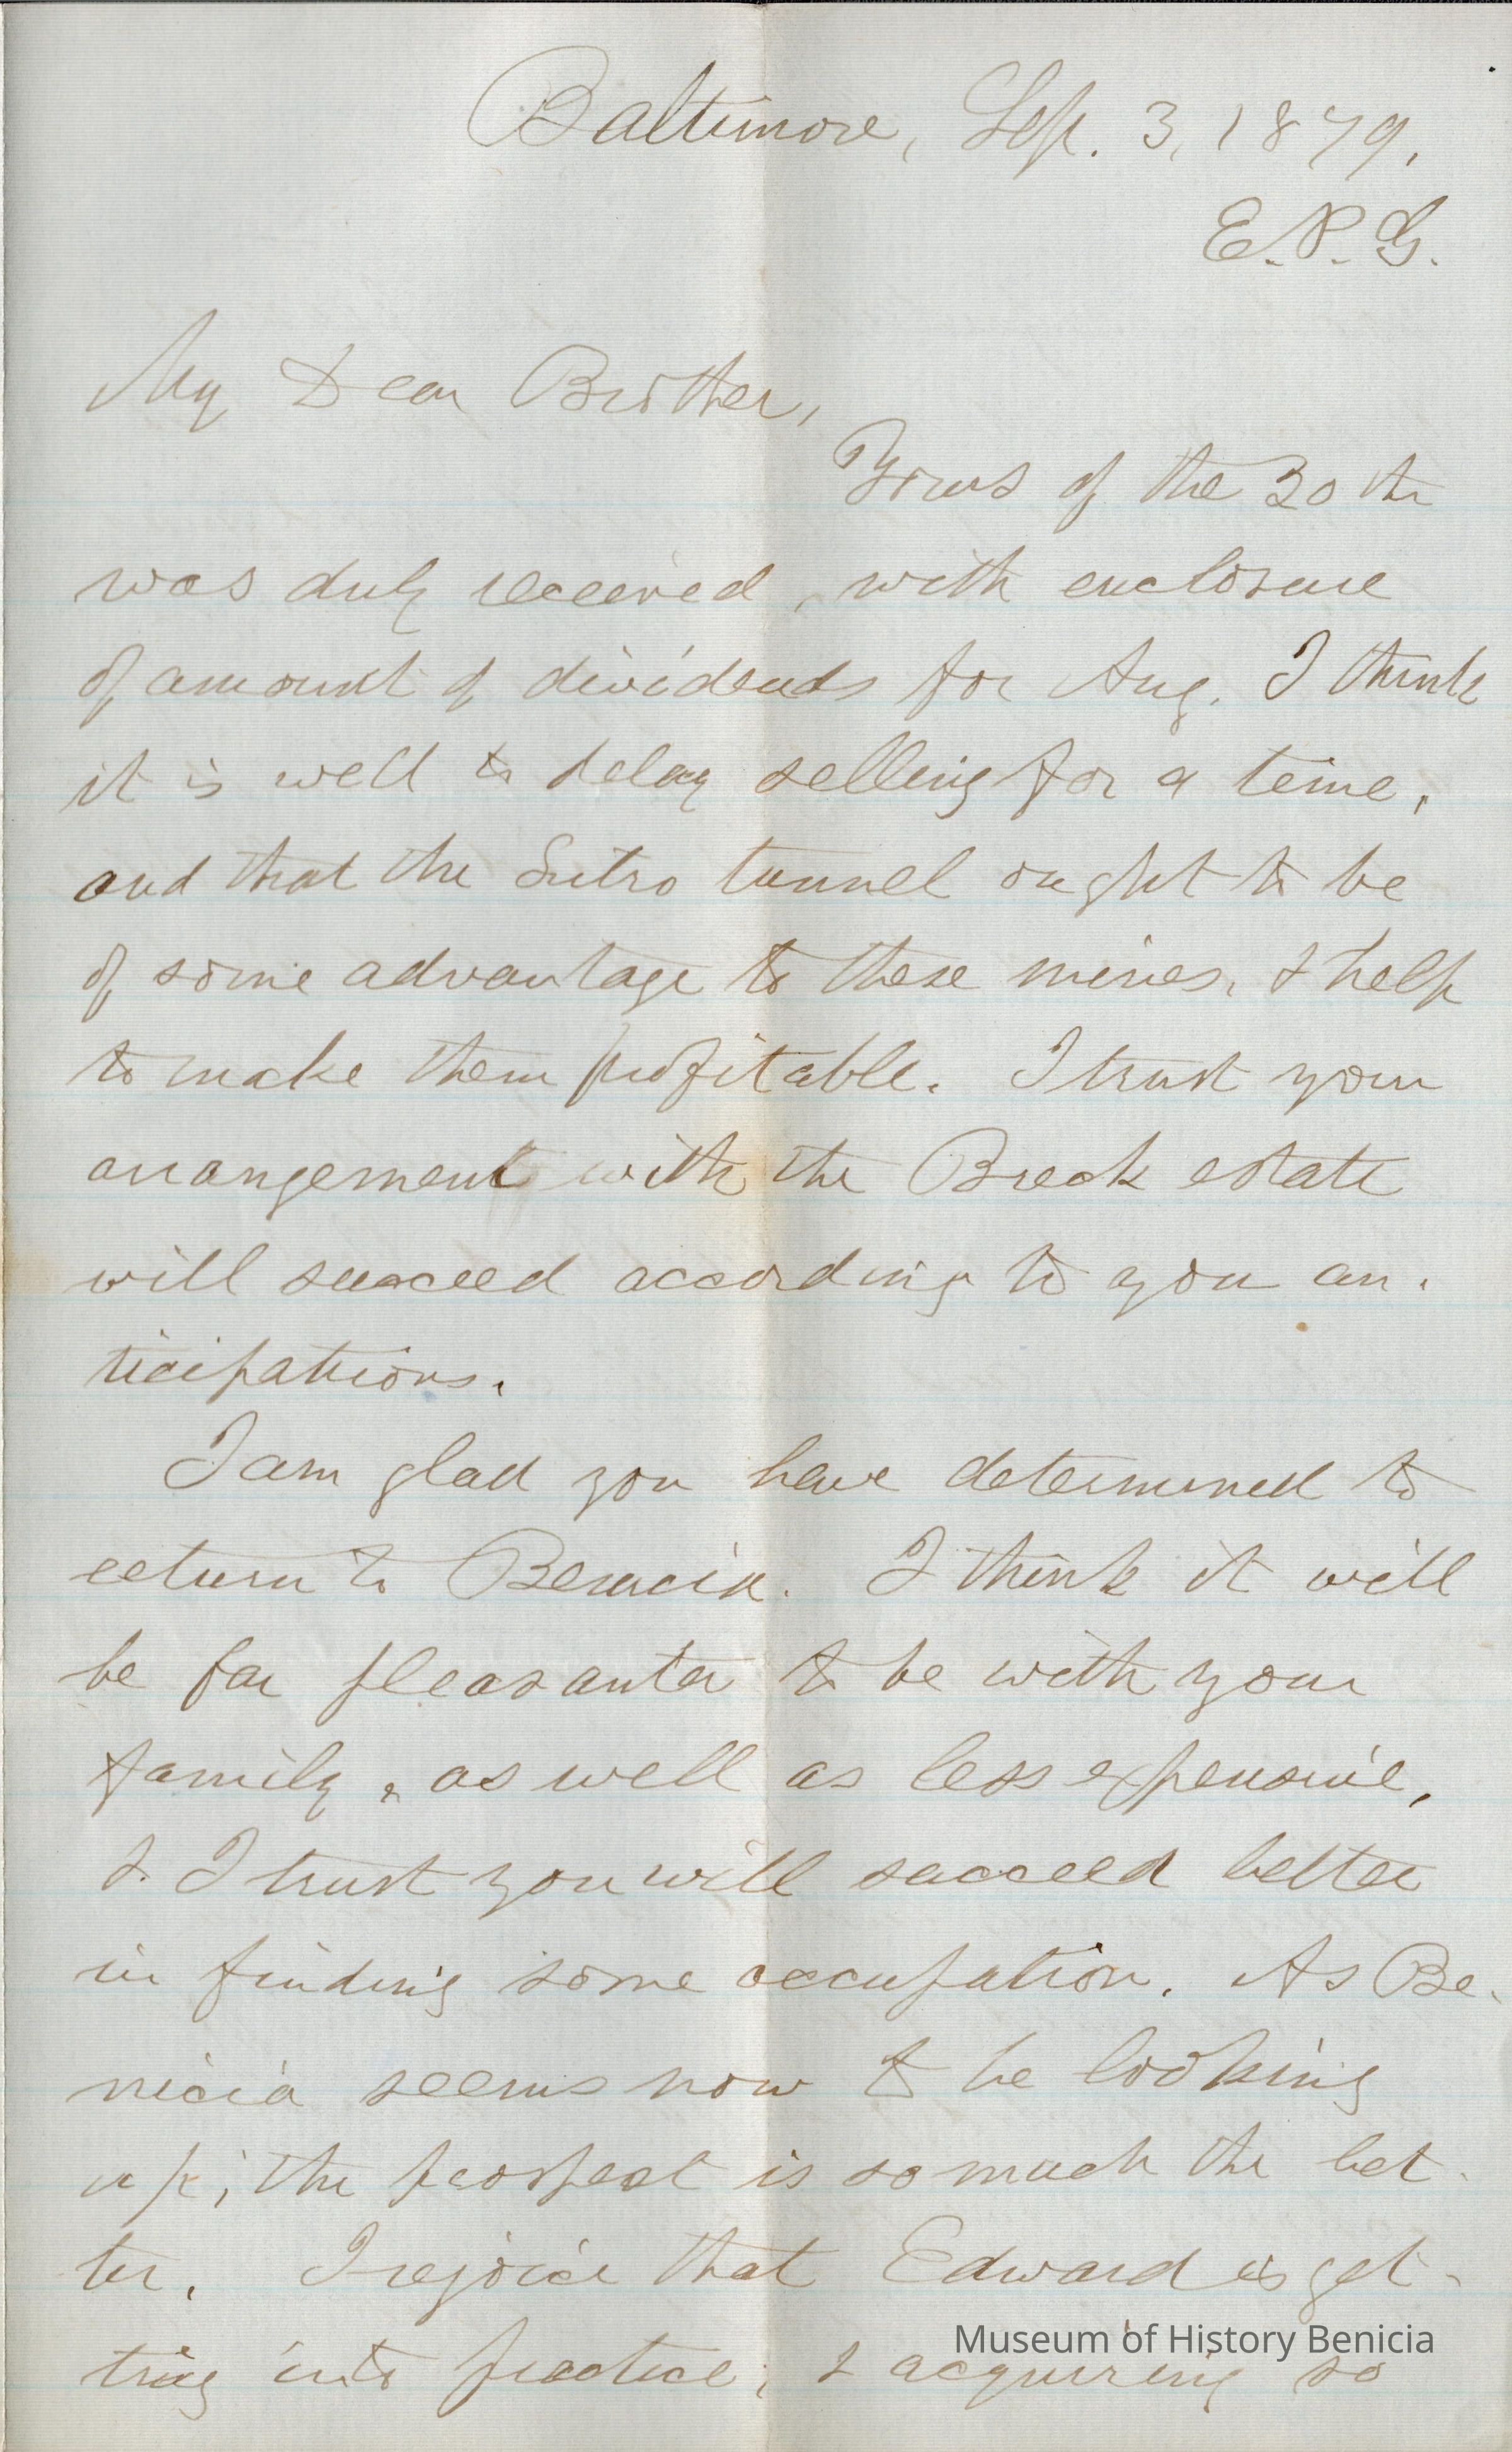 Baltimore, Sep. 3, 1879.
E. P. G.
My Dear Brother,
Yours of the 30th
was duly received, with enclosure
of amount of dividends for Aug. I think
it is well to delay selling for a time,
and that the Sutro tunnel ought to be
of some advantage to these mines, & help
to make them profitable. I trust your
arrangement with the Breck estate
will succeed according to you an-
ticipations.
I am glad you have determined to
return to Benicia. I think it will
be far pleasanter to be with your
family, as well as less expensive,
& I trust you will succeed better
in finding some occupation. As Be-
nicia seems now to be looking
up; the prospect is so much the bet-
ter. I rejoice that Edward is get-
ting into practice; & acquiring so
Museum of History Benicia